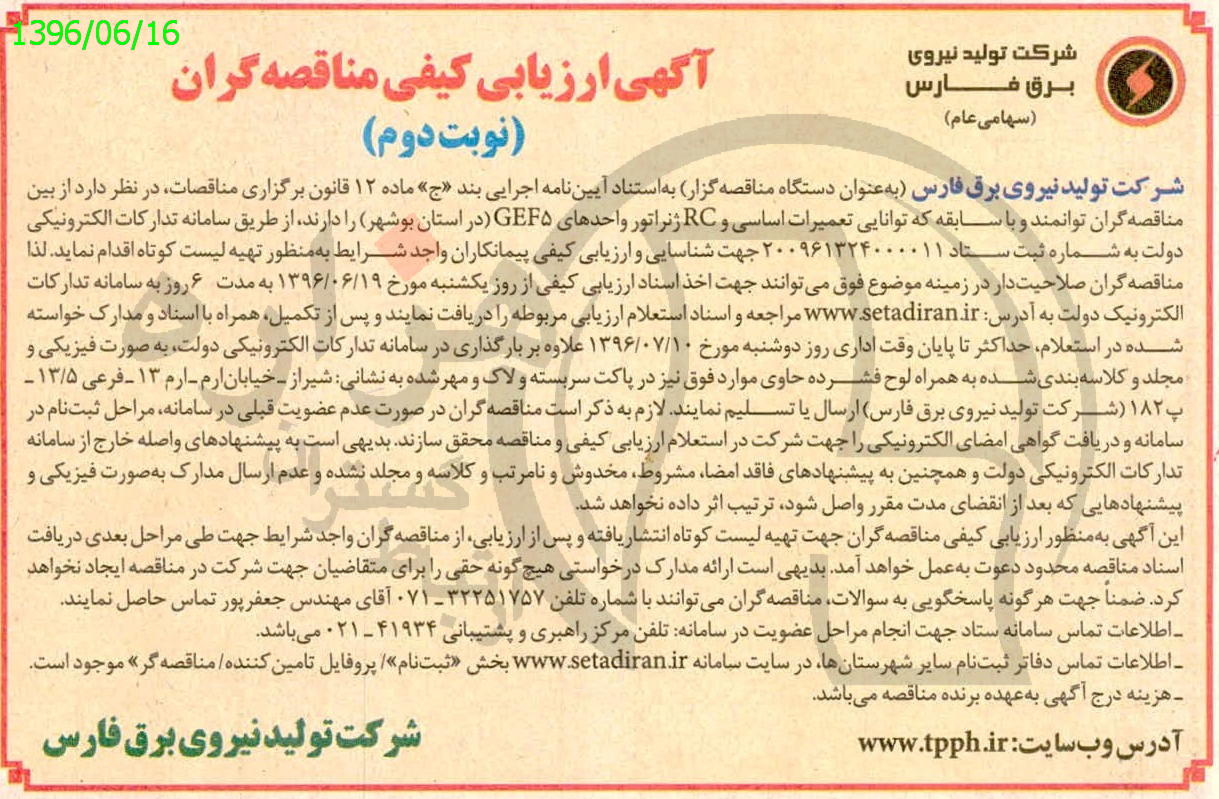 1396/06/16
شرکت تولید نیروی
برق فارس
(سهامی عام)
آگهی ارزیابی کیفی مناقصه گران
(نوبت دوم)
شرکت تولید نیروی برق فارس (به‌عنوان دستگاه مناقصه‌گزار) به‌استناد آیین‌نامه اجرایی بند «ج» ماده ۱۲ قانون برگزاری مناقصات، در نظر دارد از بین
مناقصه‌گران توانمند و با سابقه که توانایی تعمیرات اساسی و RC ژنراتور واحدهای GEF۵ (در استان بوشهر) را دارند، از طریق سامانه تدارکات الکترونیکی
دولت به شماره ثبت ستاد ۲۰۰۹۶۱۳۲۴۰۰۰۰۱۱ جهت شناسایی و ارزیابی کیفی پیمانکاران واجد شرایط به‌منظور تهیه لیست کوتاه اقدام نماید. لذا
مناقصه‌گران صلاحیت‌دار در زمینه موضوع فوق می‌توانند جهت اخذ اسناد ارزیابی کیفی از روز یکشنبه مورخ ۱۳۹۶/۰۶/۱۹ به مدت ۶ روز به سامانه تدارکات
الکترونیک دولت به آدرس: www.setadiran.ir مراجعه و اسناد استعلام ارزیابی مربوطه را دریافت نمایند و پس از تکمیل، همراه با اسناد و مدارک خواسته
شده در استعلام، حداکثر تا پایان وقت اداری روز دوشنبه مورخ ۱۳۹۶/۰۷/۱۰ علاوه بر بارگذاری در سامانه تدارکات الکترونیکی دولت، به صورت فیزیکی و
مجلد و کلاسه‌بندی‌شده به همراه لوح فشرده حاوی موارد فوق نیز در پاکت سربسته و لاک و مهر شده به نشانی: شیراز ـ خیابان ارم ـ ارم ۱۳ ـ فرعی ۱۳/۵ ـ
پ ۱۸۲ (شرکت تولید نیروی برق فارس) ارسال یا تسلیم نمایند. لازم به ذکر است مناقصه‌گران در صورت عدم عضویت قبلی در سامانه، مراحل ثبت‌نام در
سامانه و دریافت گواهی امضای الکترونیکی را جهت شرکت در استعلام ارزیابی کیفی و مناقصه محقق سازند. بدیهی است به پیشنهادهای واصله خارج از سامانه
تدارکات الکترونیکی دولت و همچنین به پیشنهادهای فاقد امضا، مشروط، مخدوش و نامرتب و کلاسه و مجلد نشده و عدم ارسال مدارک به‌صورت فیزیکی و
پیشنهادهایی که بعد از انقضای مدت مقرر واصل شود، ترتیب اثر داده نخواهد شد.
این آگهی به‌منظور ارزیابی کیفی مناقصه‌گران جهت تهیه لیست کوتاه انتشار یافته و پس از ارزیابی، از مناقصه‌گران واجد شرایط جهت طی مراحل بعدی دریافت
اسناد مناقصه محدود دعوت به‌عمل خواهد آمد. بدیهی است ارائه مدارک درخواستی هیچ‌گونه حقی را برای متقاضیان جهت شرکت در مناقصه ایجاد نخواهد
کرد. ضمناً جهت هرگونه پاسخگویی به سوالات، مناقصه‌گران می‌توانند با شماره تلفن ۳۲۲۵۱۷۵۷ ـ ۰۷۱ آقای مهندس جعفرپور تماس حاصل نمایند.
ـ اطلاعات تماس سامانه ستاد جهت انجام مراحل عضویت در سامانه: تلفن مرکز راهبری و پشتیبانی ۴۱۹۳۴ ـ ۰۲۱ می‌باشد.
ـ اطلاعات تماس دفاتر ثبت‌نام سایر شهرستان‌ها، در سایت سامانه www.setadiran.ir بخش «ثبت‌نام»/ پروفایل تامین‌کننده/ مناقصه‌گر» موجود است.
ـ هزینه درج آگهی به‌عهده برنده مناقصه می‌باشد.
آدرس وب‌سایت: www.tpph.ir
شرکت تولید نیروی برق فارس